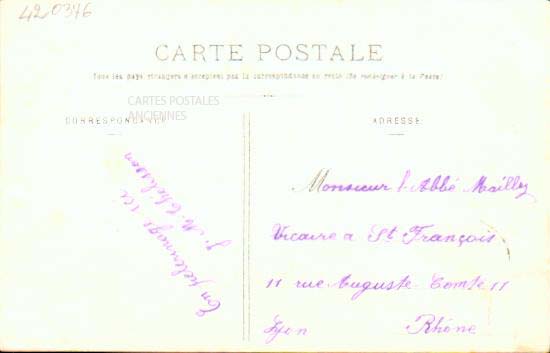 420376
CARTE POSTALE
Tous les pays étrangers n'acceptent pas la correspondance au recto (Se renseigner à la Poste)
CARTES POSTALES
ANCIENNES
CORRESPONDANCE
ADRESSE
En pelerinage ici
J. M.
Monsieur l'Abbé Mailley
Vicaire a St François
11 rue Auguste-Comte 11
Lyon Rhône